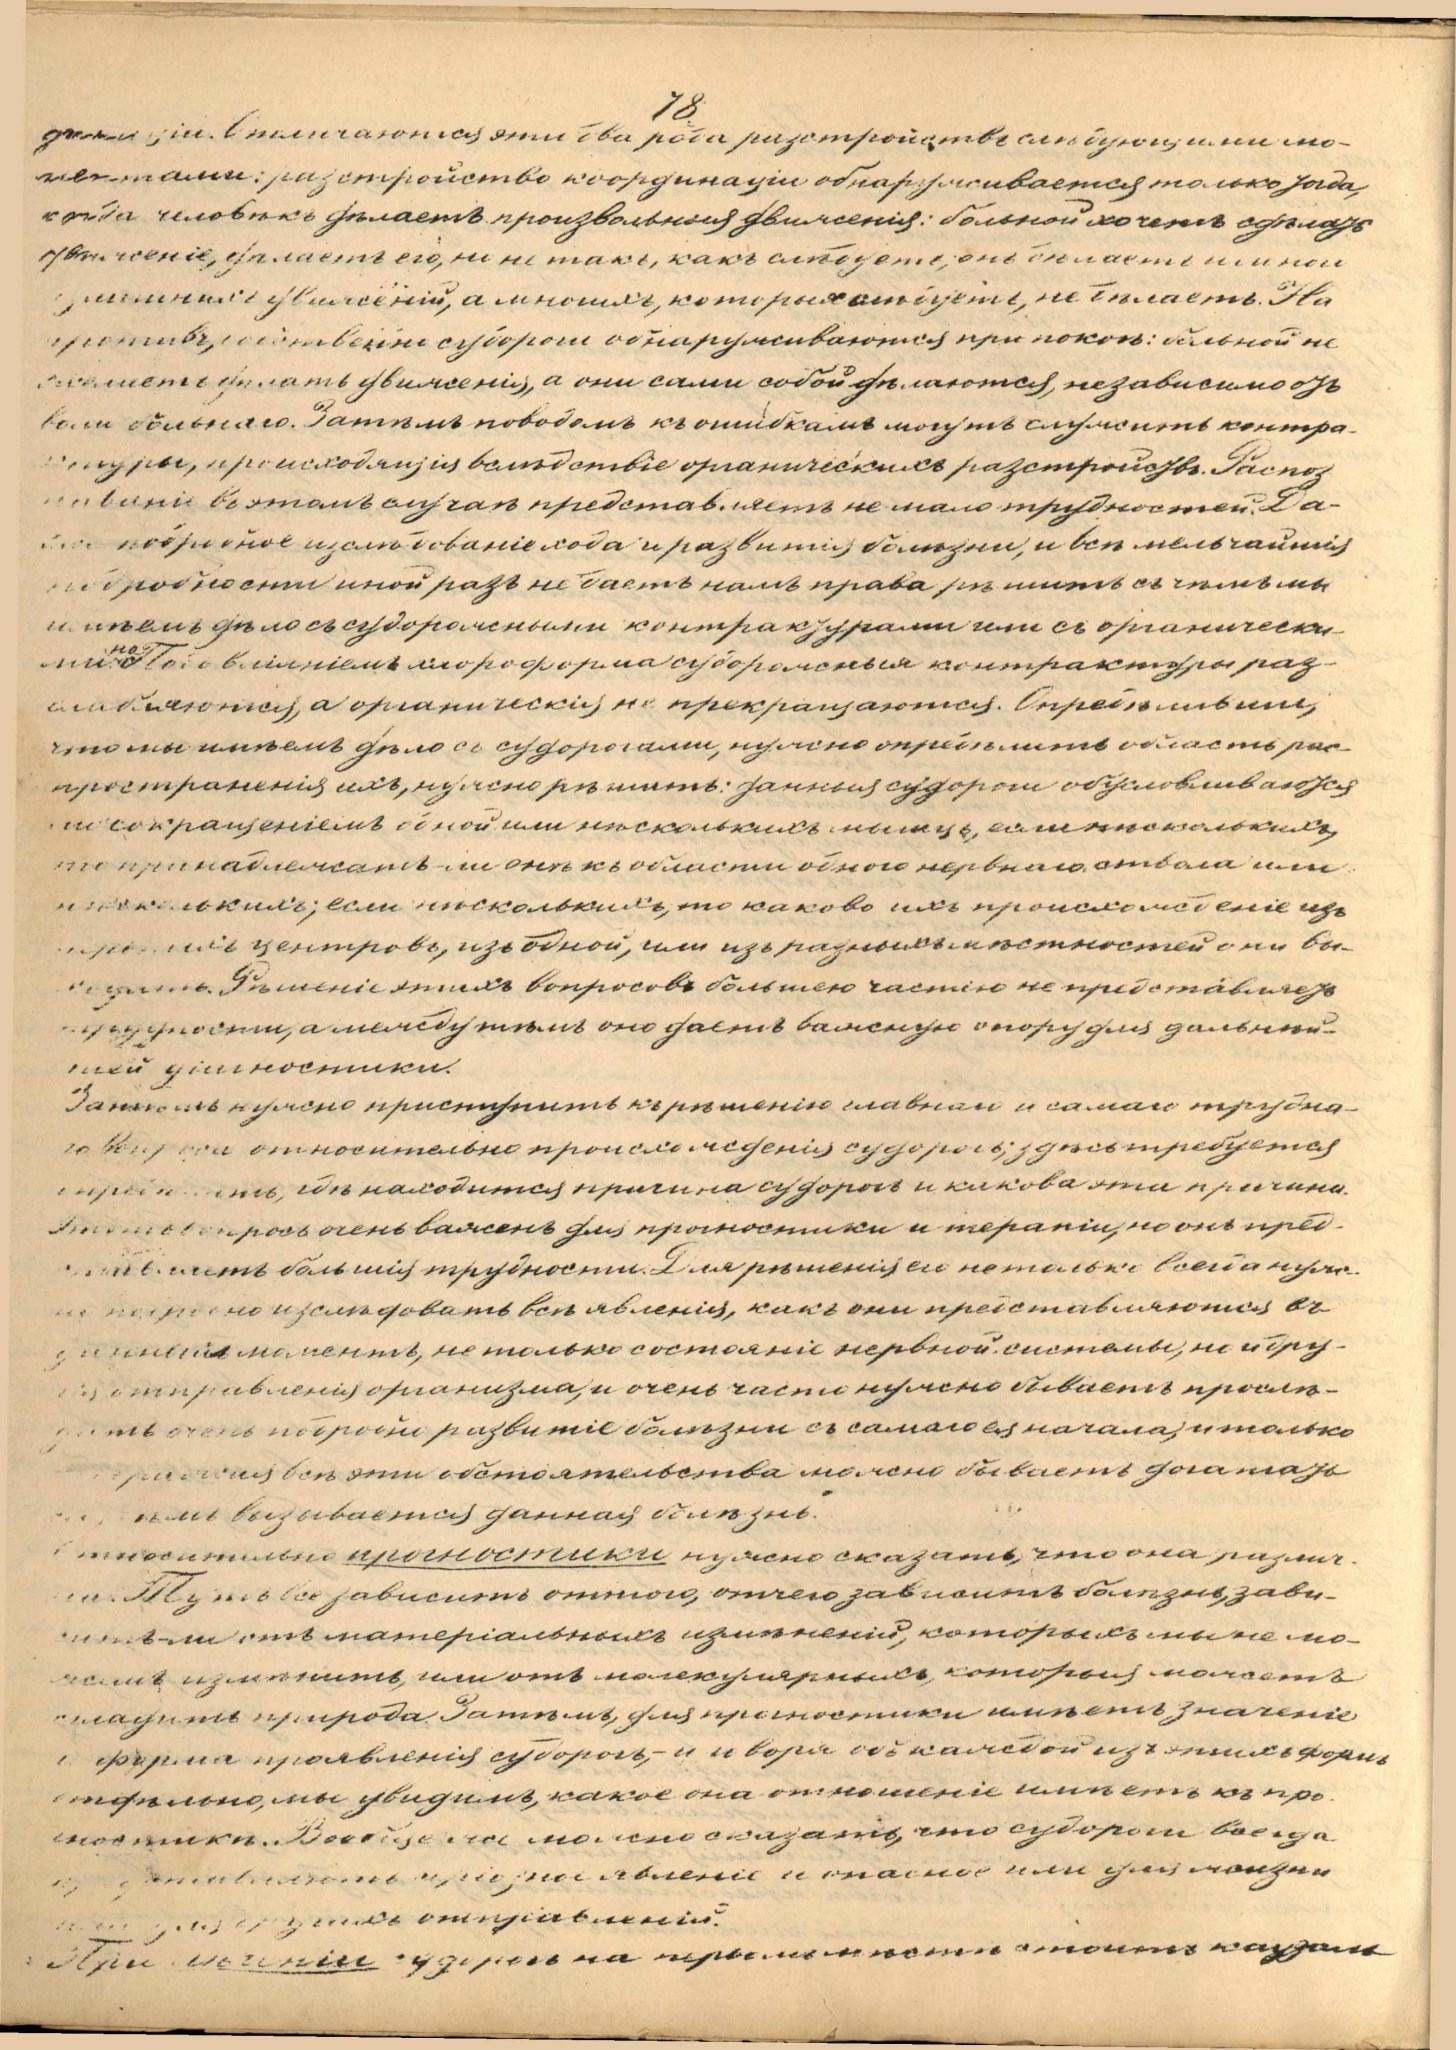 78.
динаціи. Отличаются эти два рода разстройствъ слѣдующими мо-
ментами: разстройство координаціи обнаруживается только тогда,
когда человѣкъ дѣлаетъ произвольныя движенія: больной хочетъ сдѣлать
движеніе, дѣлаетъ его, но не такъ, какъ слѣдуетъ, онъ дѣлаетъ много
лишнихъ движеній, а многихъ, которыя слѣдуетъ, не дѣлаетъ. На
противъ, собственно судороги обнаруживаются при покоѣ: больной не
желаетъ дѣлать движенія, а они сами собой дѣлаются, независимо отъ
воли больнаго. Затѣмъ поводомъ къ ошибкамъ могутъ служить контра-
ктуры, происходящія вслѣдствіе органическихъ разстройствъ. Распоз
наваніе въ этомъ случаѣ представляетъ не мало трудностей. Да-
же подробное изслѣдованіе хода и развитія болѣзни, и всѣ мельчайшія
подробности иной разъ не даетъ намъ права рѣшить съ чѣмъ мы
имѣемъ дѣло съ судорожными контрактурами или съ органически-
ми. Подъ вліяніемъ хлороформа судорожныя контрактуры раз-
слабляются, а органическія не прекращаются. Опредѣливши,
что мы имѣемъ дѣло съ судорогами, нужно опредѣлить область рас-
пространенія ихъ, нужно рѣшить: данныя судороги обусловливаются
ли сокращеніемъ одной или нѣсколькихъ мышцъ, если нѣсколькихъ,
то принадлежатъ-ли онѣ къ области одного нервнаго ствола или
нѣсколькихъ; если нѣсколькихъ, то каково ихъ происхожденіе изъ
нервныхъ центровъ, изъ одной, или изъ разныхъ мѣстностей они вы-
ходятъ. Рѣшеніе этихъ вопросовъ большею частію не представляетъ
трудности, а между тѣмъ оно даетъ важную опору для дальнѣй-
шей діагностики.
Затѣмъ нужно приступить къ рѣшенію главнаго и самаго трудна-
го вопроса относительно происхожденія судорогъ; здѣсь требуется
опредѣлить, гдѣ находится причина судорогъ и какова эта причина.
Этотъ вопросъ очень важенъ для прогностики и терапіи, но онъ пред-
ставляетъ большія трудности. Для рѣшенія его не только всегда нуж-
но подробно изслѣдовать всѣ явленія, какъ они представляются въ
данный моментъ, не только состояніе нервной системы, но и дру-
гія отправленія организма, и очень часто нужно бываетъ прослѣ-
дить очень подробно развитіе болѣзни съ самаго ея начала, и только
всѣ эти обстоятельства можно бываетъ догадать
чѣмъ вызывается данная болѣзнь.
Относительно прогностики нужно сказать, что она различ-
на. Тутъ все зависитъ оттого, отчего зависитъ болѣзнь, зави-
ситъ-ли отъ матеріальныхъ измѣненій, которыхъ мы не мо-
жемъ измѣнить, или отъ молекулярныхъ, которыя можетъ
сгладить природа. Затѣмъ, для прогностики имѣетъ значеніе
и форма проявленія судорогъ,- и говоря объ каждой изъ этихъ формъ
отдѣльно, мы увидимъ, какое она отношеніе имѣетъ къ прог-
ностикѣ. Вообще же можно сказать, что судороги всегда
представляютъ грозное явленіе и опасное или для жизни
или для другихъ отправленій.
При леченіи судорогъ на первомъ мѣстѣ стоитъ каузаль